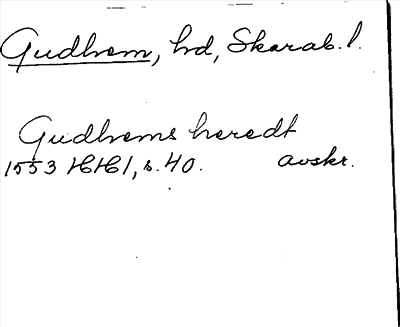 Gudhem, hd, Skarab. l.
Gudhems heredt
1553 HH 1, s. 40. avskr.